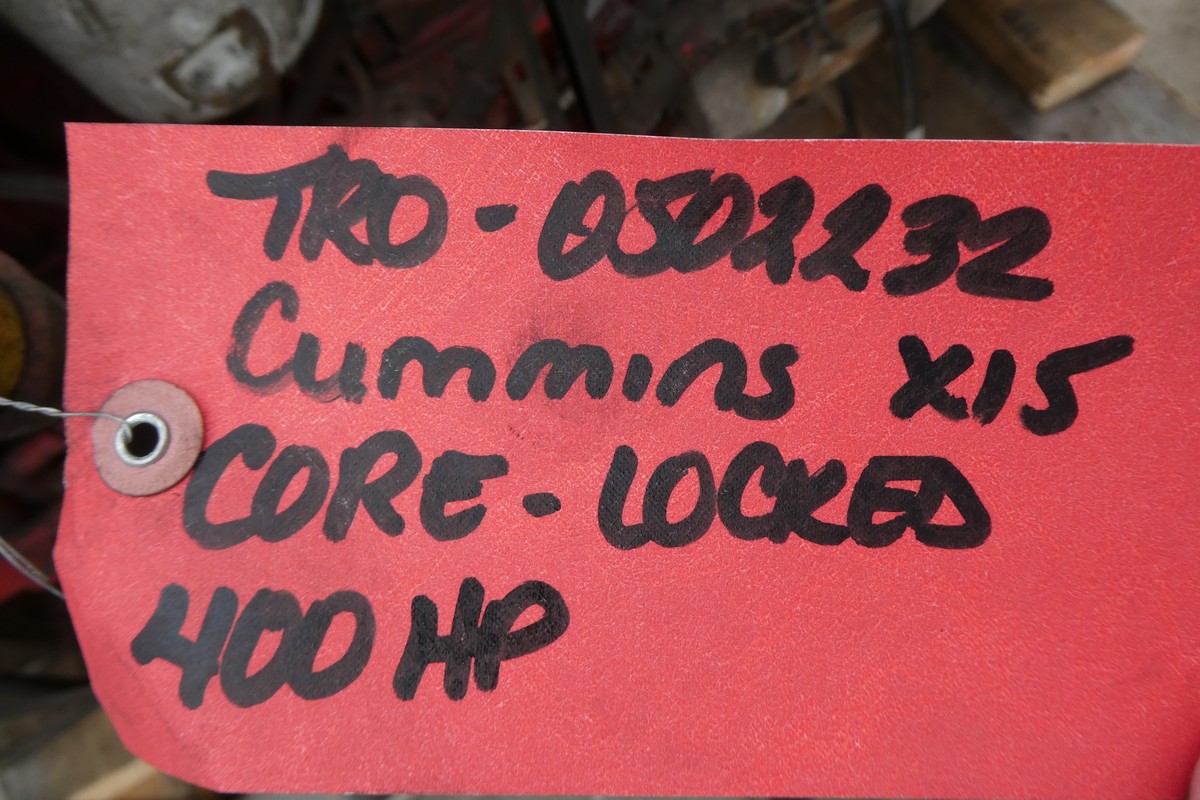 TRO-0502232
Cummins X15
CORE-LOCKED
400 HP